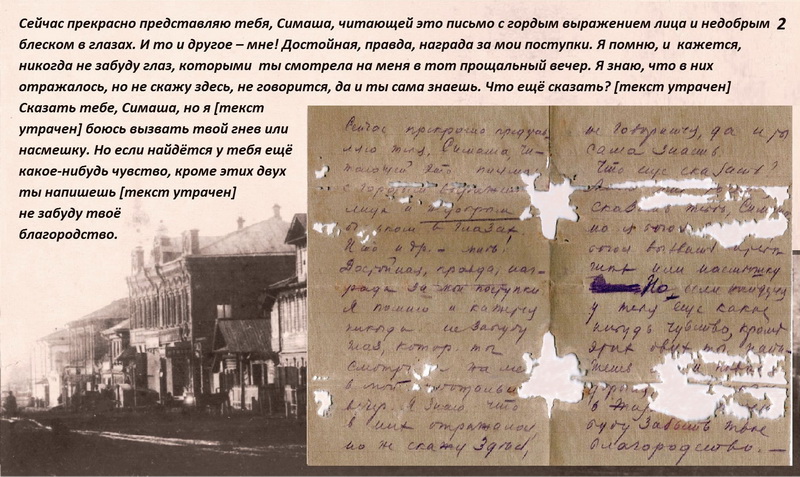 Сейчас прекрасно представляю тебя, Симаша, читающей это письмо с гордым выражением лица и недобрым
2
блеском в глазах. И то и другое – мне! Достойная, правда, награда за мои поступки. Я помню, и кажется,
никогда не забуду глаз, которыми ты смотрела на меня в тот прощальный вечер. Я знаю, что в них
отражалось, но не скажу здесь, не говорится, да и ты сама знаешь. Что ещё сказать? [текст утрачен]
Сказать тебе, Симаша, но я [текст
утрачен] боюсь вызвать твой гнев или
насмешку. Но если найдётся у тебя ещё
какое-нибудь чувство, кроме этих двух
ты напишешь [текст утрачен]
не забуду твоё
благородство.
Сейчас прекрасно представ
ляю тебя, Симаша, чи-
тающей это
с гордым
лица и недобрым
в глазах.
И то и др. – мне!
Достойная, правда, наг-
рада за мои поступки
Я помню и кажется
никогда не забуду
глаз, котор. ты
смотр на ме
в той
вечер. Я знаю что
в них отражалось
но не скажу здесь,
не говорится, да и ты
сама знаешь.
Что еще сказать?
тебе,
но я
вызвать
или насмешку
Но если найдется
у тебя еще какое
нибудь чувство, кроме
этих двух ты напи
шешь
буду забыть твое
благородство. —